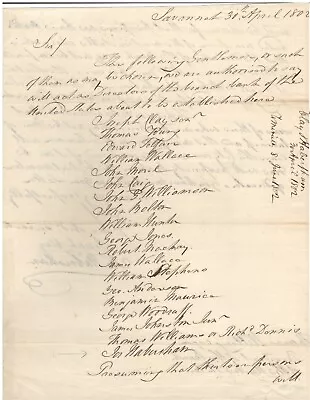 Savannah 30th April 1802
Sir/
The following Gentlemen, or such
of them as may be chosen, we are authorized to say
will act as Directors of the branch bank of the
United States about to be established here
Joseph Clay senr
Thomas Young
Edward Telfair
William Wallace
John Morel
John Craig
John G Williamson
John Bolton
William Hunter
George Jones
Robert Mackay
James Wallace
William Stephens
Geo. Anderson
Benjamin Maurice
George Woodruff
James Johnston Junr
Thomas Williams or Richd Dennis
Jos Habersham
Presuming that thirteen persons
will
Clay & Habersham
30 April 1802
1802